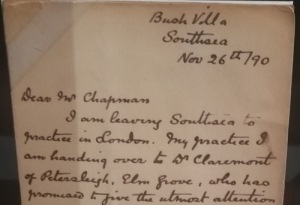 Bush Villa
Southsea
Nov 26th/90
Dear Mr Chapman
I am leaving Southsea to
practice in London. My practice I
am handing over to Dr Claremont
of Petersleigh, Elm Grove, who has
promised to give the utmost attention